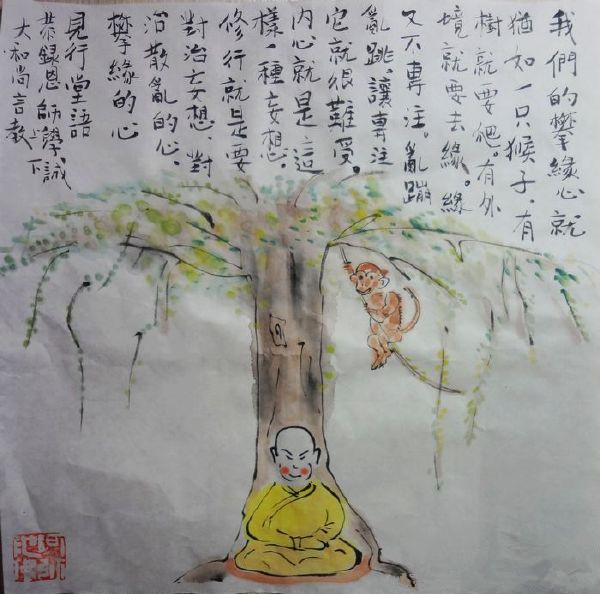 我們的攀緣心就
猶如一只猴子，有
樹就要爬。有外
境就要去緣。緣
又不專注。亂蹦
亂跳。讓專注
它就很難受。
内心就是這
樣一種妄想。
修行就是要
對治妄想對
治散亂的心、
攀緣的心
見行堂語
恭錄恩師學誠
大和尚言教